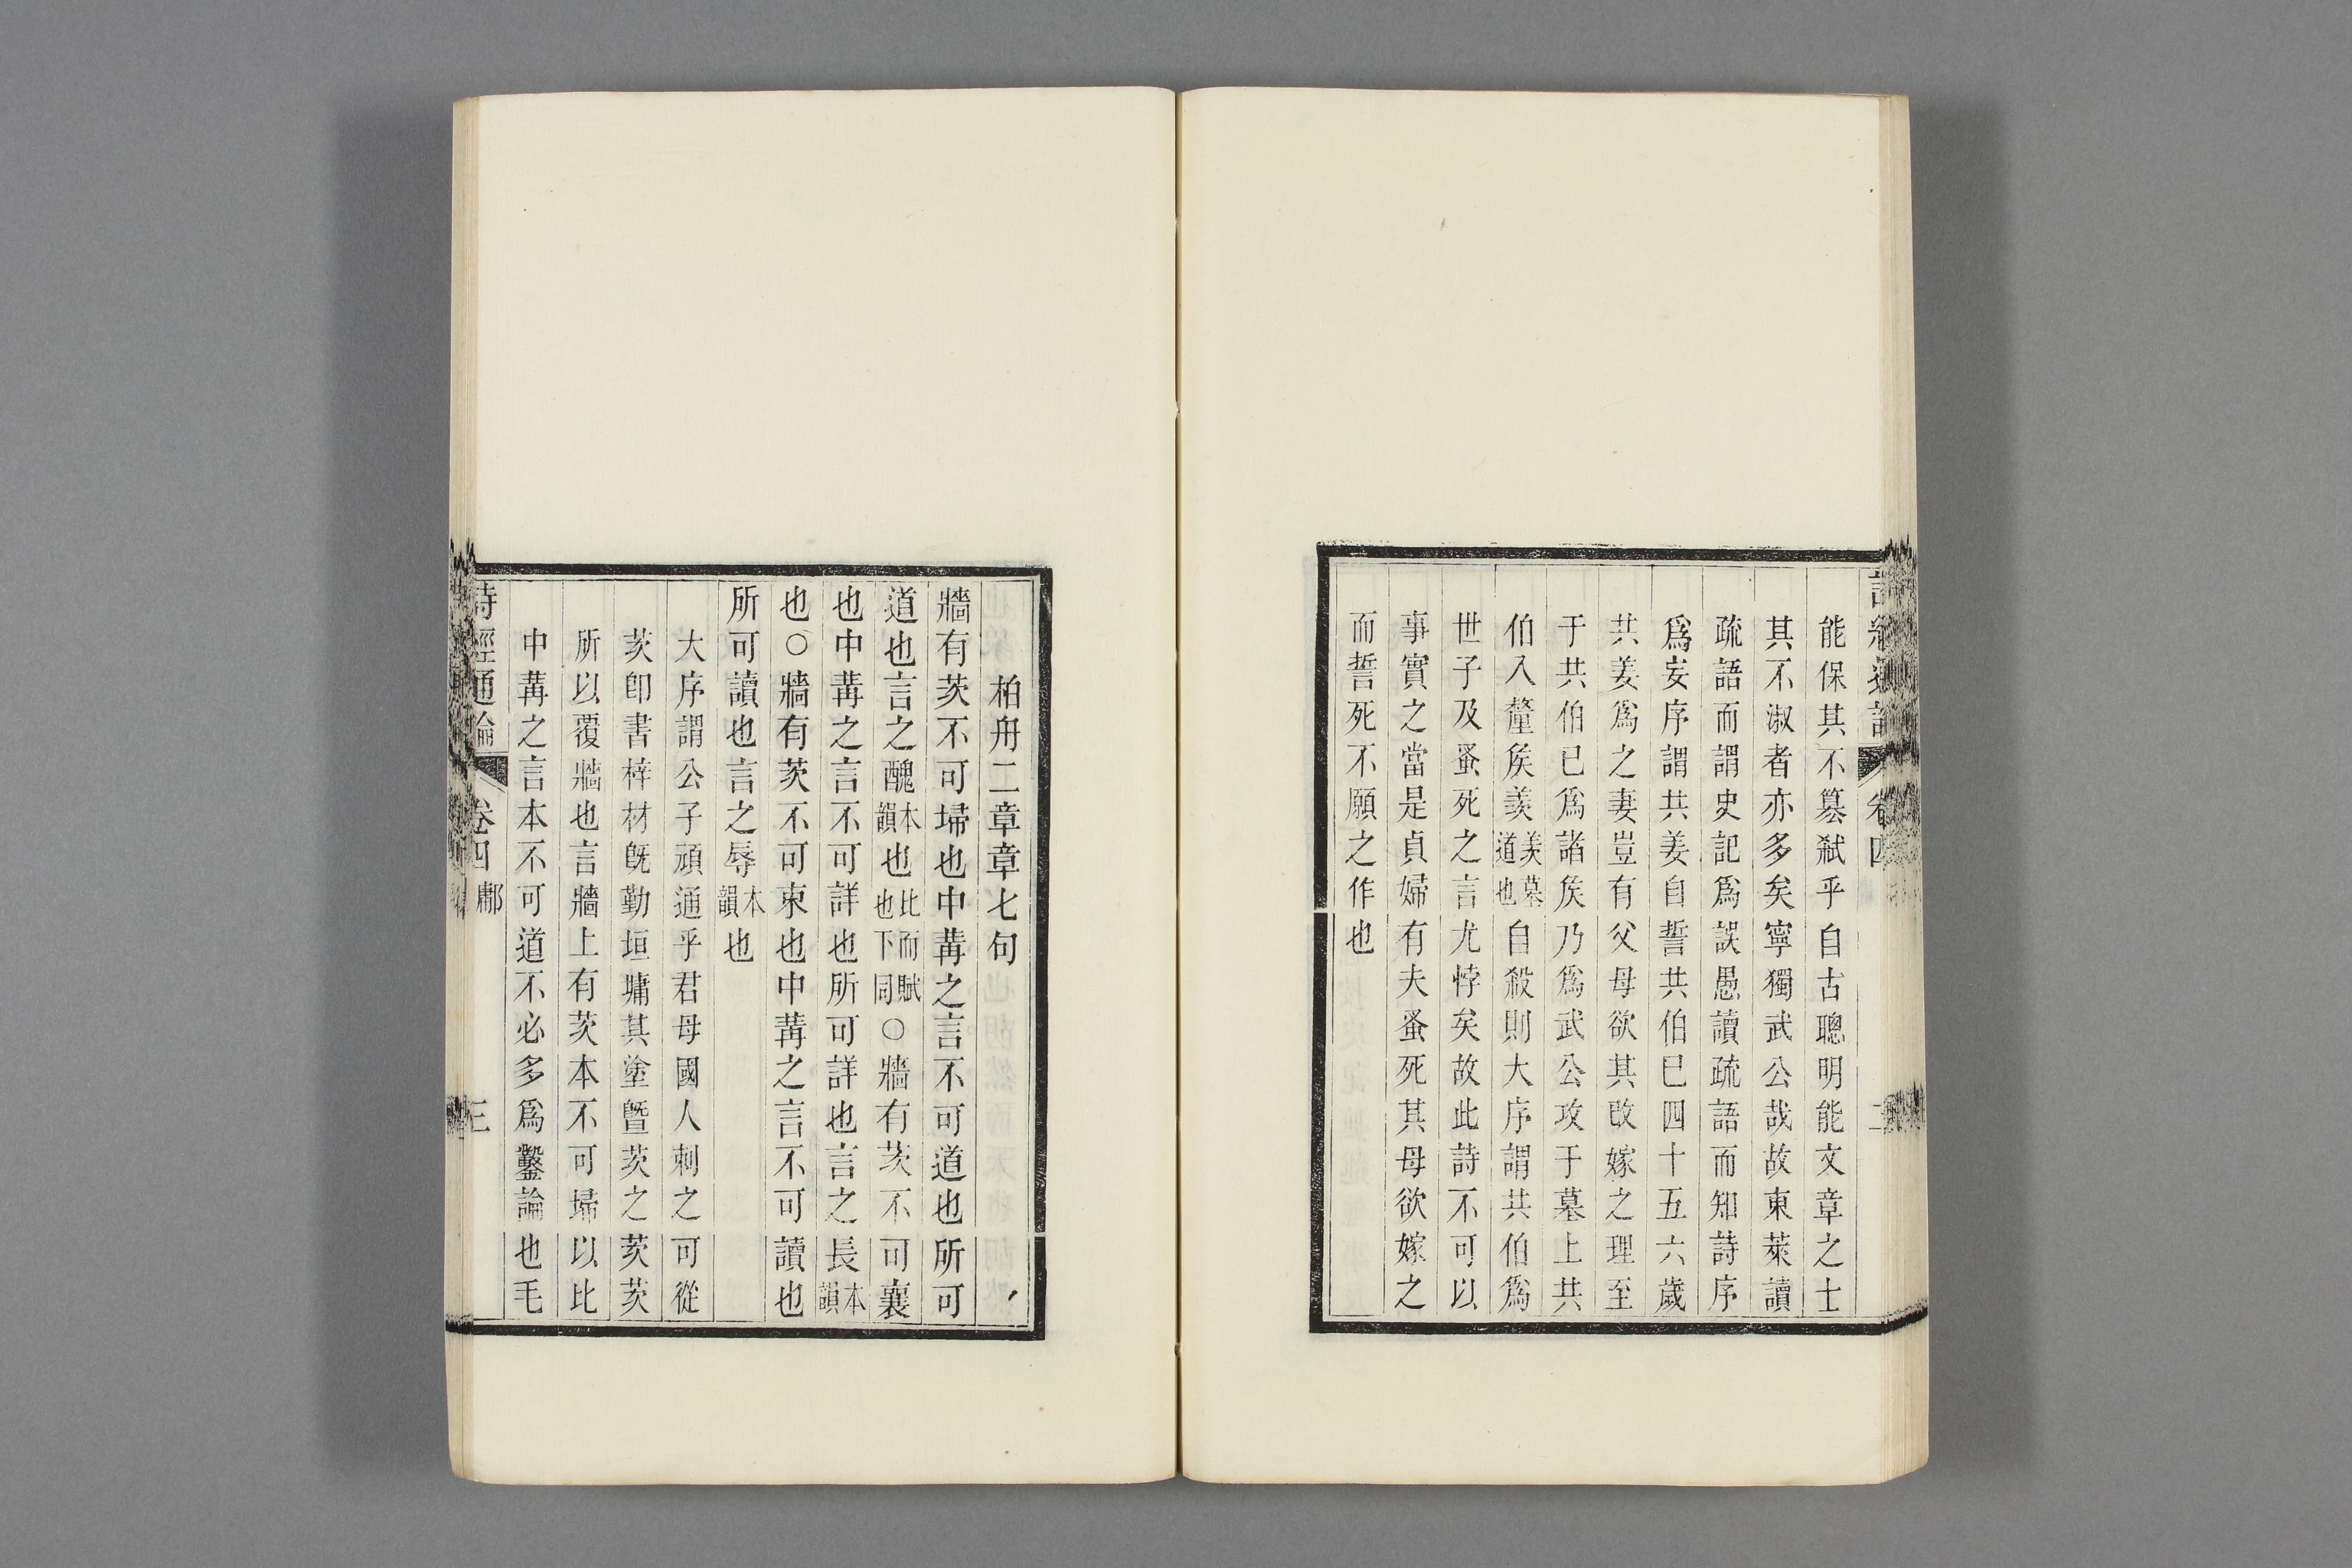 能保其不篡弑乎自古聰明能文章之士
其不淑者亦多矣寧獨武公哉故東萊讀
疏語而謂史記爲誤愚讀疏語而知詩序
爲妄序謂共姜自誓共伯已四十五六歲
共姜爲之妻豈有父母欲其改嫁之理至
于共伯已爲諸侯乃爲武公攻于墓上共
伯入釐侯羨羨墓道也自殺則大序謂共伯爲
世子及蚤死之言尤悖矣故此詩不可以
事實之當是貞婦有夫蚤死其母欲嫁之
而誓死不願之作也
柏舟二章章七句
牆有茨不可埽也中冓之言不可道也所可
道也言之醜本韻也比而賦也下同○牆有茨不可襄
也中冓之言不可詳也所可詳也言之長本韻
也○牆有茨不可束也中冓之言不可讀也
所可讀也言之辱本韻也
大序謂公子頑通乎君母國人刺之可從
茨卽書梓材既勤垣墉其塗曁茨之茨茨
所以覆牆也言牆上有茨本不可埽以比
中冓之言本不可道不必多爲鑿論也毛
詩經通論
卷四 鄘
三